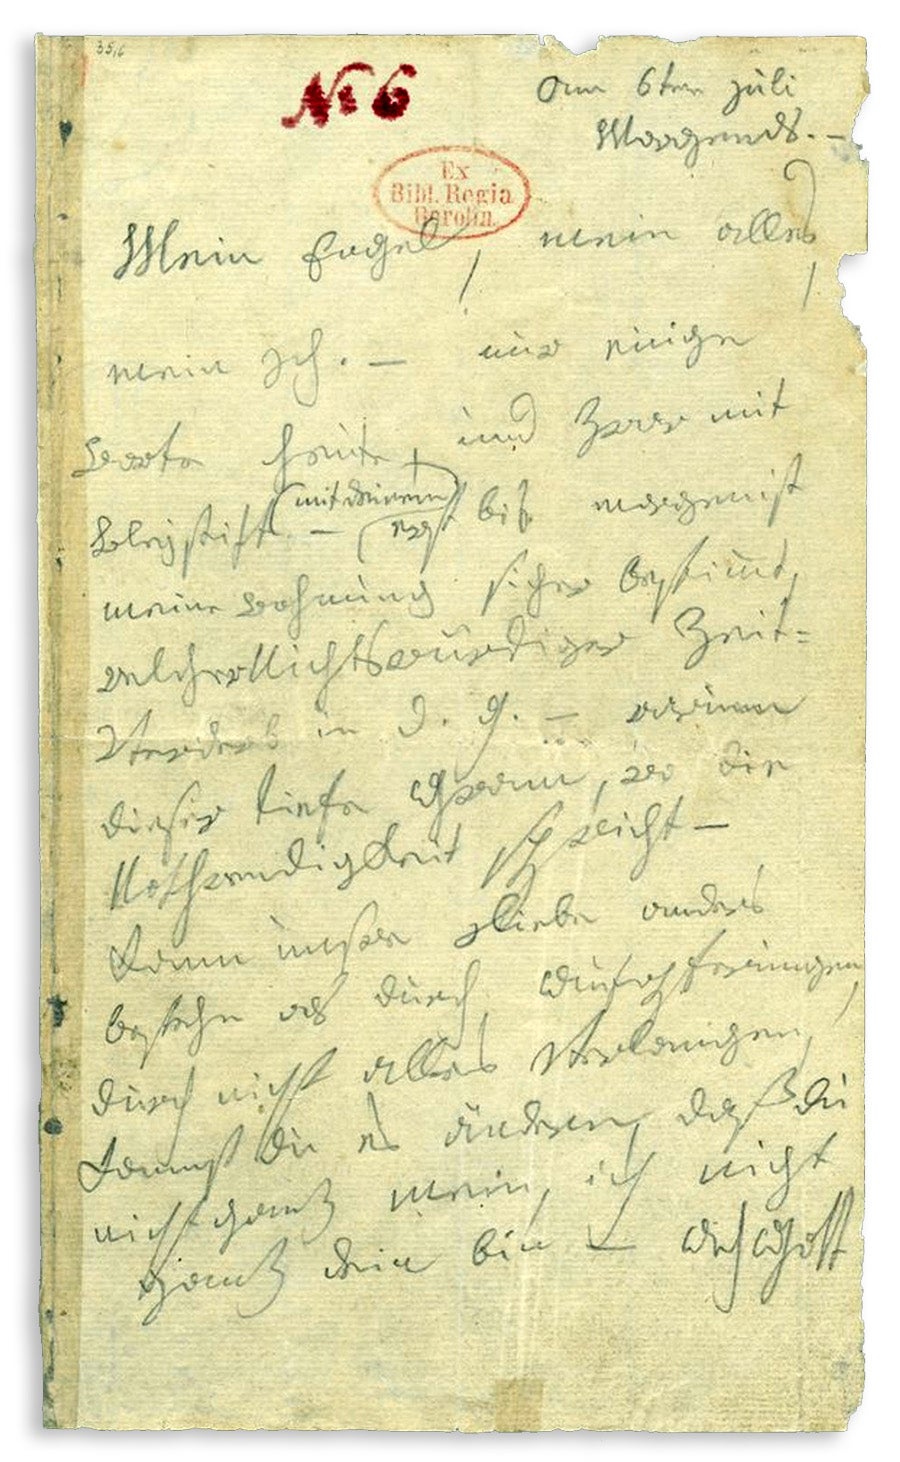 35,6
№ 6
am 6ten juli
Morgends. –
Ex
Bibl. Regia
Berolin.
Mein Engel, mein alles,
mein Ich. – nur einige
Worte heute, und zwar mit
Bleystift – (mit deinem)
erst bis morgen ist
meine wohnung sicher bestimt,
welcher Nichtswürdiger Zeit-
Verderb in d. g. – warum
dieser tiefe Gram, wo die
Nothwendigkeit spricht –
Kann unsre Liebe anders
bestehn als durch Aufopferungen,
durch nicht alles Verlangen,
kannst du es ändern, daß du
nicht ganz mein, ich nicht
ganz dein bin – Ach Gott